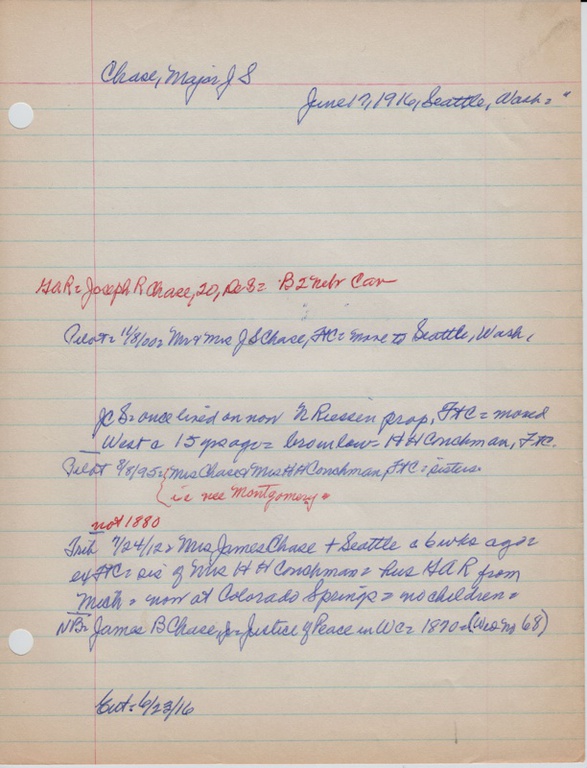 Chase, Major J S
June 17, 1916, Seattle, Wash = "
GAR = Joseph R Chase, 20, DeS = B2 Nebr Cav
Pilot = 11/8/00 = Mr & Mrs J S Chase, FtC = move to Seattle, Wash,
JCS = once lived on now N Riessen prop, FtC = moved
West c 15 yrs ago = brominlaw = H H Conchman, FtC.
Pilot 8/8/95 = Mrs Chase & Mrs H H Conchman, FtC = sisters =
is nee Montgomery "
not 1880
Trib 7/24/12 = Mrs James Chase + Seattle c 6 wks ago =
ex FtC = sis of Mrs H H Conchman = hus GAR from
Mich = now at Colorado Springs = no children =
NB = James B Chase, Jr = Justice of Peace in WC = 1870 = (Wed 68)
Cut = 6/23/16